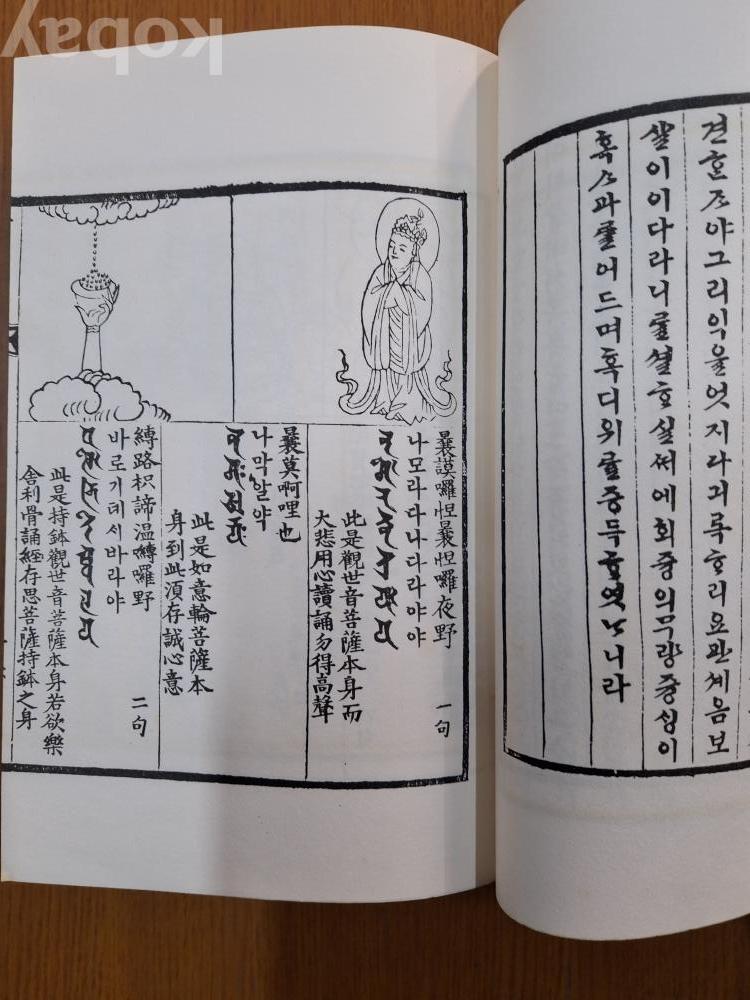 견ᄒᆞᄌᆞ야그리익을엇지라긔록ᄒᆞ리요관셰음보
살이이다라니ᄅᆞᆯ셜ᄒᆞ실ᄊᆡ에회즁의무량즁싱이
혹ᄉᆞ과ᄅᆞᆯ어드며혹디위ᄅᆞᆯ증득ᄒᆞ엿ᄂᆞ니라
曩謨囉怛曩怛囉夜野 一句
나모라다나다라야야
此是觀世音菩薩本身而
大悲用心讀誦勿得高聲
曩莫啊哩也
나막알약
此是如意輪菩薩本
身到此須存誠心意
縛路枳諦溫嚩囉野 二句
바로기데시바라야
此是持鉢觀世音菩薩本身若欲樂
舍利骨誦經存思菩薩持鉢之身
kobay